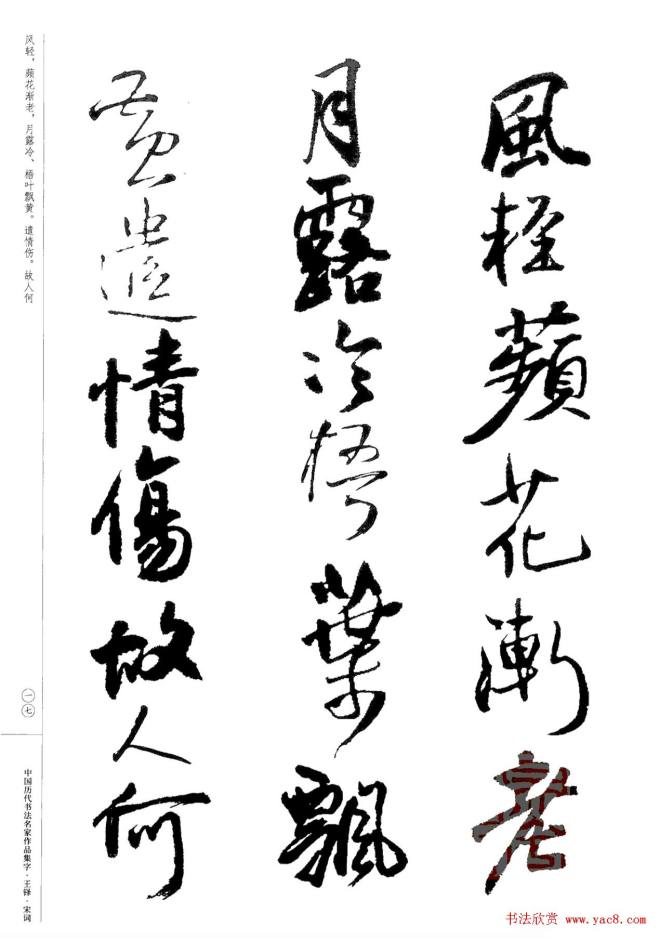 風輕蘋花漸老
月露冷梧葉飄
黄遣情傷故人何
风轻，蘋花渐老，月露冷、梧叶飘黄。遣情伤。故人何
一七
中国历代书法名家作品集字·王铎·宋词
书法欣赏 www.yac8.com